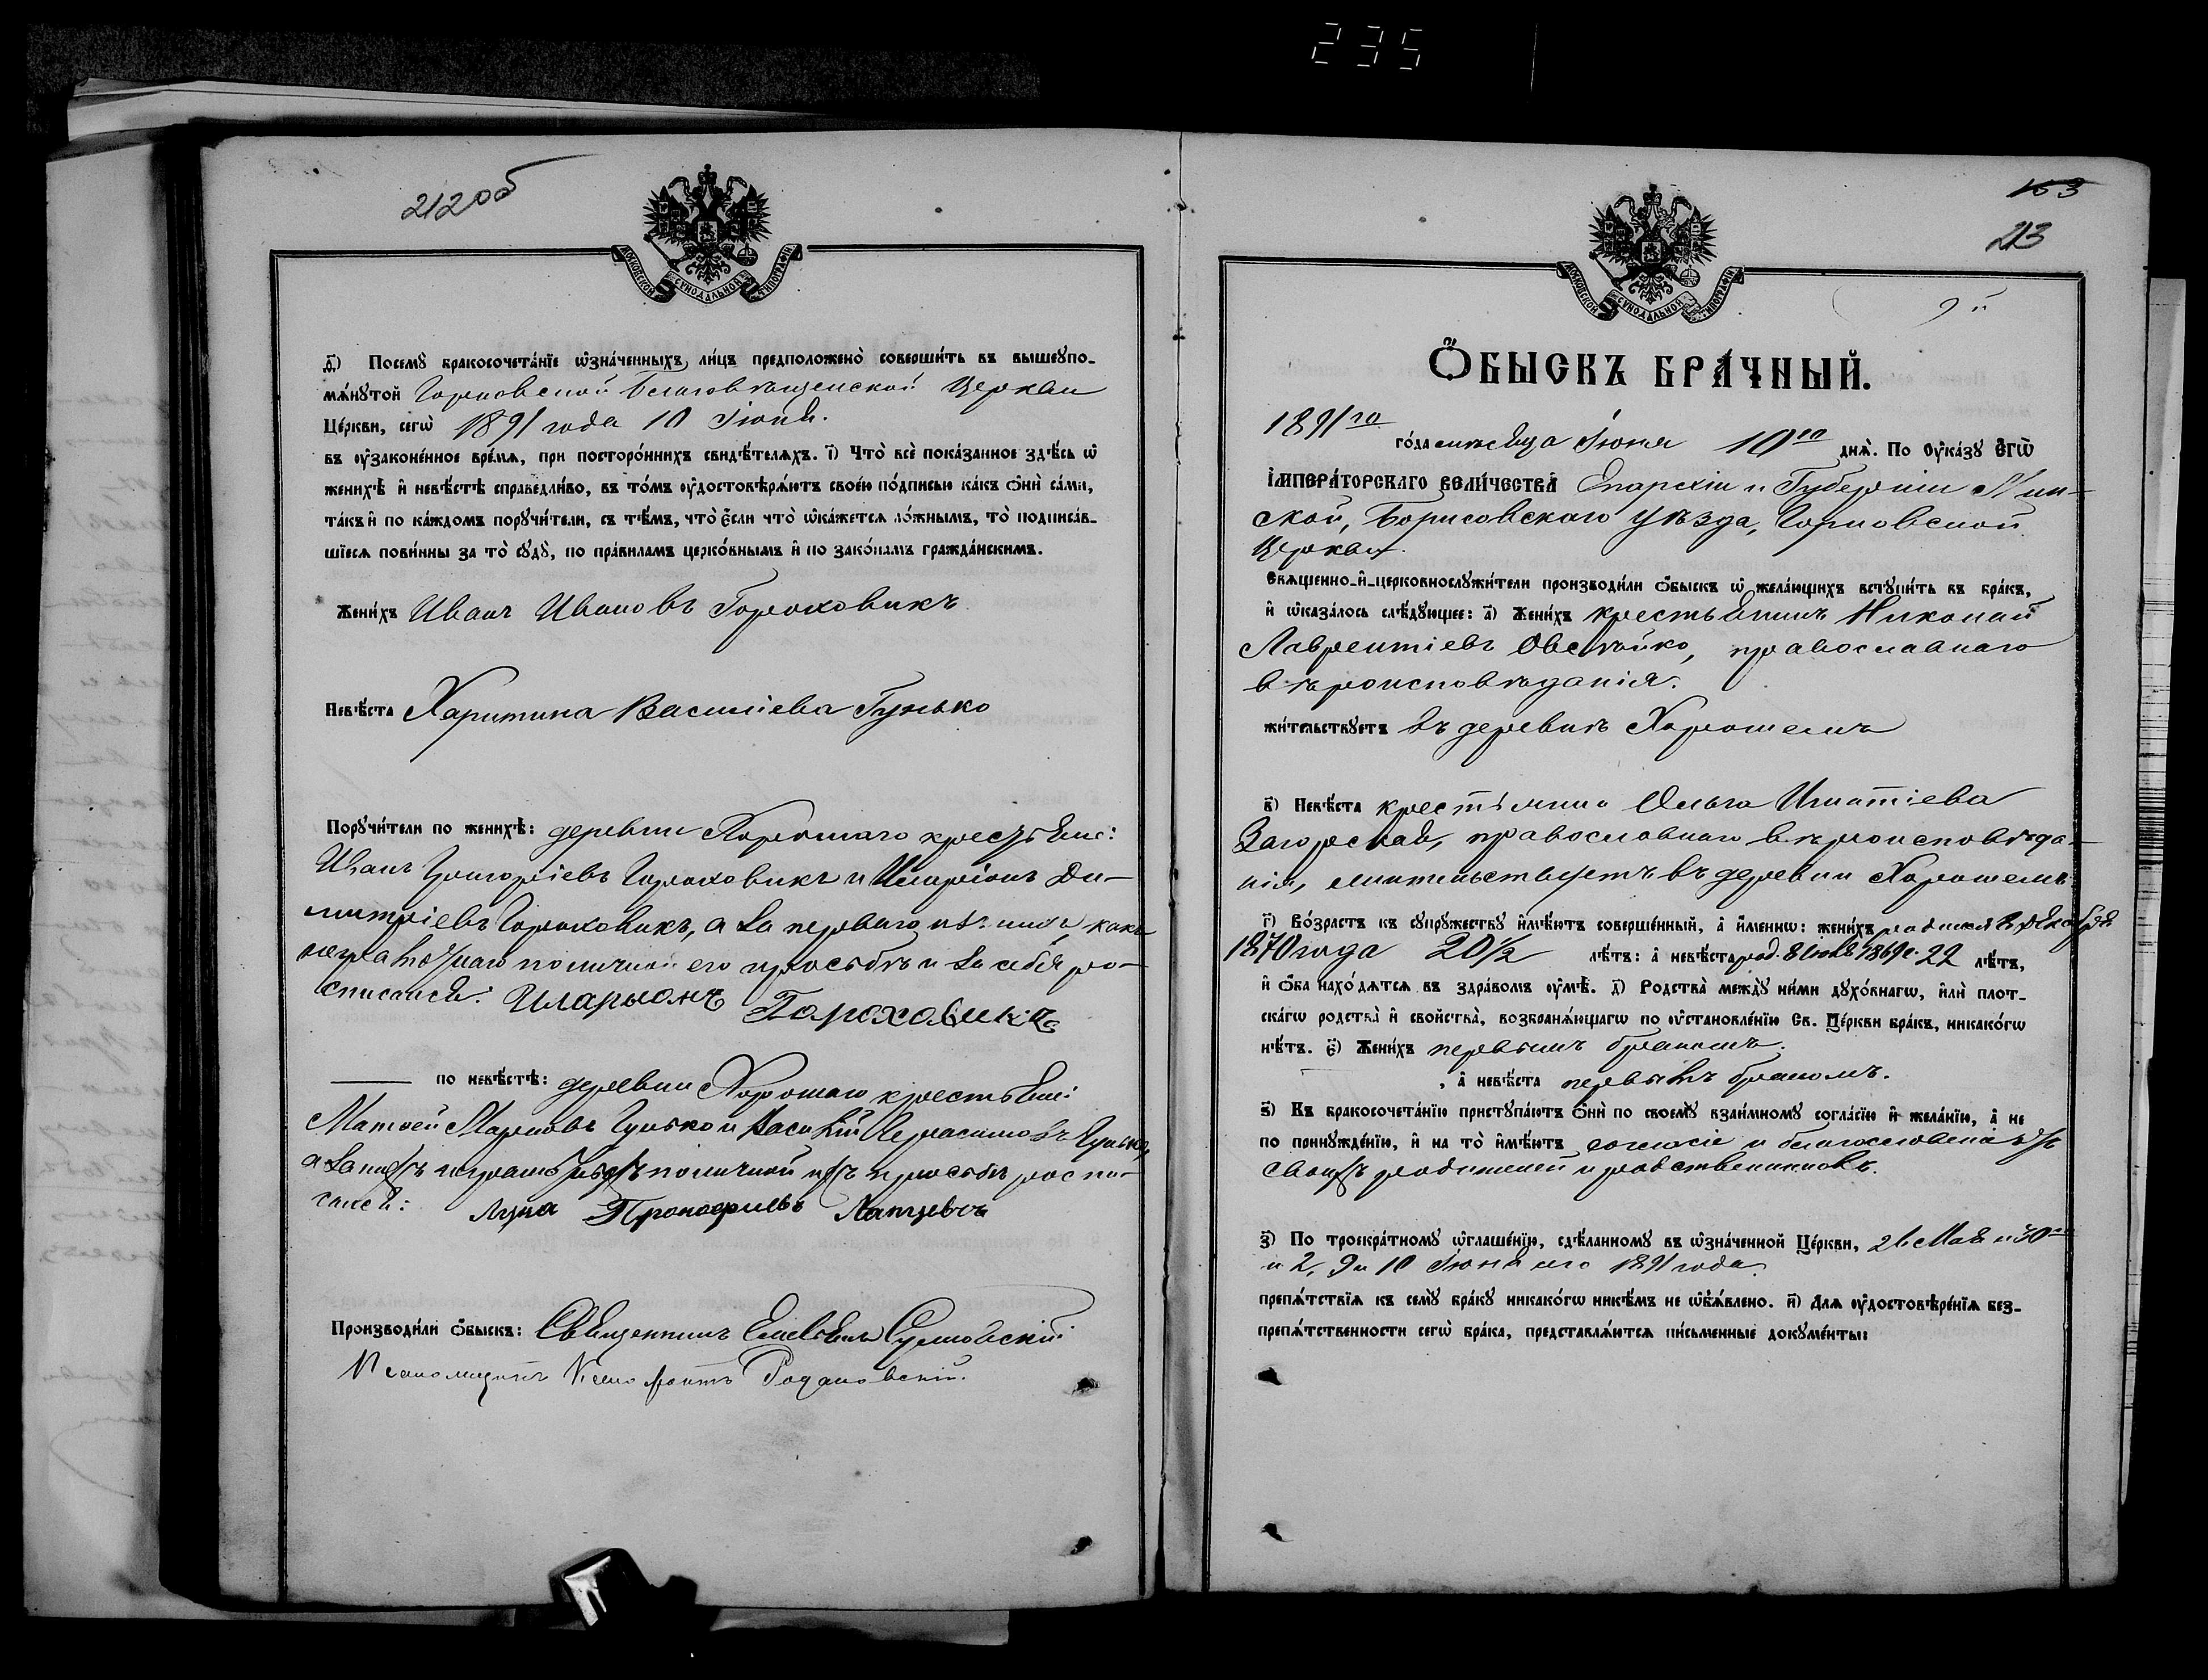 235
212об
МОСКОВСКОЙ СѴНОДАЛЬНОЙ ТИПОГРАФІИ
д҃і) Посемꙋ бракосочета́нїе ѡ҆зна́ченныхъ ли́цъ предположено̀ соверши́ть въ вышеꙋпо-
мѧ́нꙋтой Благовѣщенской Церкви
Це́ркви, сегѡ̀ 1891 года 10 Іюня.
въ ᲂу҆зако́не́нное вре́мѧ, при посторо́ннихъ свидѣ́телѧхъ. і҃) Что̀ всѐ пока́занное здѣ́сь ѡ҆
женихѣ̀ и҆ невѣ́стѣ справедли́во, въ то́мъ ᲂу҆достовѣрѧ́ютъ свое́ю по́дписью ка́къ ѻ҆нѝ са́ми,
та́къ и҆ по ка́ждомъ порꙋчи́тели, съ тѣ́мъ, что̀ є҆́сли что̀ ѡ҆ка́жетсѧ ло́жнымъ, то̀ подписа́в-
шїесѧ пови́нны за то̀ сꙋдꙋ̀, по пра́виламъ церко́внымъ и҆ по зако́намъ гражда́нскимъ.
Жени́хъ Иванъ Ивановъ Гороховикъ
Невѣ́ста Харитина Василіева Гунько
Порꙋчи́тели по женихѣ̀: деревни Хорошаго крестьяне:
Иванъ Григоріевъ Гороховикъ и Иларіонъ Ди-
митріевъ Гороховикъ, а за перваго изъ нихъ, какъ
неграмотнаго по личной его просьбѣ и за себя ро-
списался: Иларыонъ Гороховикъ
по невѣ́стѣ: деревни Хорошаго крестьяне:
Матѳей Марковъ Гунько и Василій Герасимовъ Гунько,
а за нихъ неграмотныхъ по личной ихъ просьбѣ роспи-
сался: Лука Прокофьевъ
Производи́ли ѻ҆́быскъ: Священникъ
Псаломщикъ Ксенофонтъ
163
213
9й
МОСКОВСКОЙ СѴНОДАЛЬНОЙ ТИПОГРАФІИ
Ѻ҆БЫСКЪ БРА́ЧНЫЙ.
1891го
го́да мѣсяца Іюня 10го днѧ̀. По ᲂу҆ка́зꙋ Є҆ГѠ̀
І҆МПЕРА́ТОРСКАГО ВЕЛИ́ЧЕСТВА Епархіи и Губерніи Мин-
ской, Борисовскаго уѣзда,
Церкви.
Свѧще́нно-и҆-церковнослꙋжи́тели производи́ли ѻ҆́быскъ ѡ҆ жела́ющихъ встꙋпи́ть въ бра́къ,
и҆ ѡ҆каза́лось слѣ́дꙋющее: а҃) Жени́хъ крестьянинъ Николай
Лаврентіевъ Овсяйко, православнаго
вѣроисповѣданія.
жи́тельствꙋетъ въ деревнѣ Хорошемъ
в҃) Невѣ́ста крестьянка Ольга Игнатіева
Загорская, православнаго вѣроисповѣда-
нія, жительствуетъ въ деревни Хорошемъ
г҃) Во́зрастъ къ сꙋпрꙋ́жествꙋ и҆мѣ́ютъ соверше́нный, а҆ и҆́меннѡ: жени́хъ родился Декабря
1870 года 20½ лѣ́тъ: а҆ невѣ́ста род. 8 1869 г. 22 лѣ́тъ,
и҆ ѻ҆́ба нахо́дѧтсѧ въ здра́вомъ ᲂу҆мѣ̀. д҃) Родства̀ междꙋ̀ ни́ми дꙋхо́внагѡ, и҆лѝ плот-
ска́гѡ родства̀ и҆ свойства̀, возбранѧ́ющагѡ по ᲂу҆становле́нїю Св. Це́ркви бра́къ, никако́гѡ
нѣ́тъ. є҃) Жени́хъ первымъ бракомъ.
, а҆ невѣ́ста первымъ бракомъ.
ѕ҃) Къ бракосочета́нїю пристꙋпа́ютъ ѻ҆нѝ по своемꙋ̀ взаи́мномꙋ согла́сїю и҆ жела́нїю, а҆ не
по принꙋжде́нїю, и҆ на то̀ и҆мѣ́ютъ согласіе и благословеніе
своихъ родителей и родственниковъ.
з҃) По троекра́тномꙋ ѡ҆глаше́нїю, сдѣ́ланномꙋ въ ѡ҆зна́ченной Це́ркви, 26 Мая и 30го
и 2, 9 и 10 Іюня 1891 года.
препѧ́тствїѧ къ семꙋ̀ бра́кꙋ никако́гѡ никѣ́мъ не ѡ҆б̾ѧ́влено. и҃) Длѧ ᲂу҆достовѣре́нїѧ без-
препѧ́тственности сегѡ̀ бра́ка, представлѧ́ютсѧ пи́сьменные докꙋме́нты: